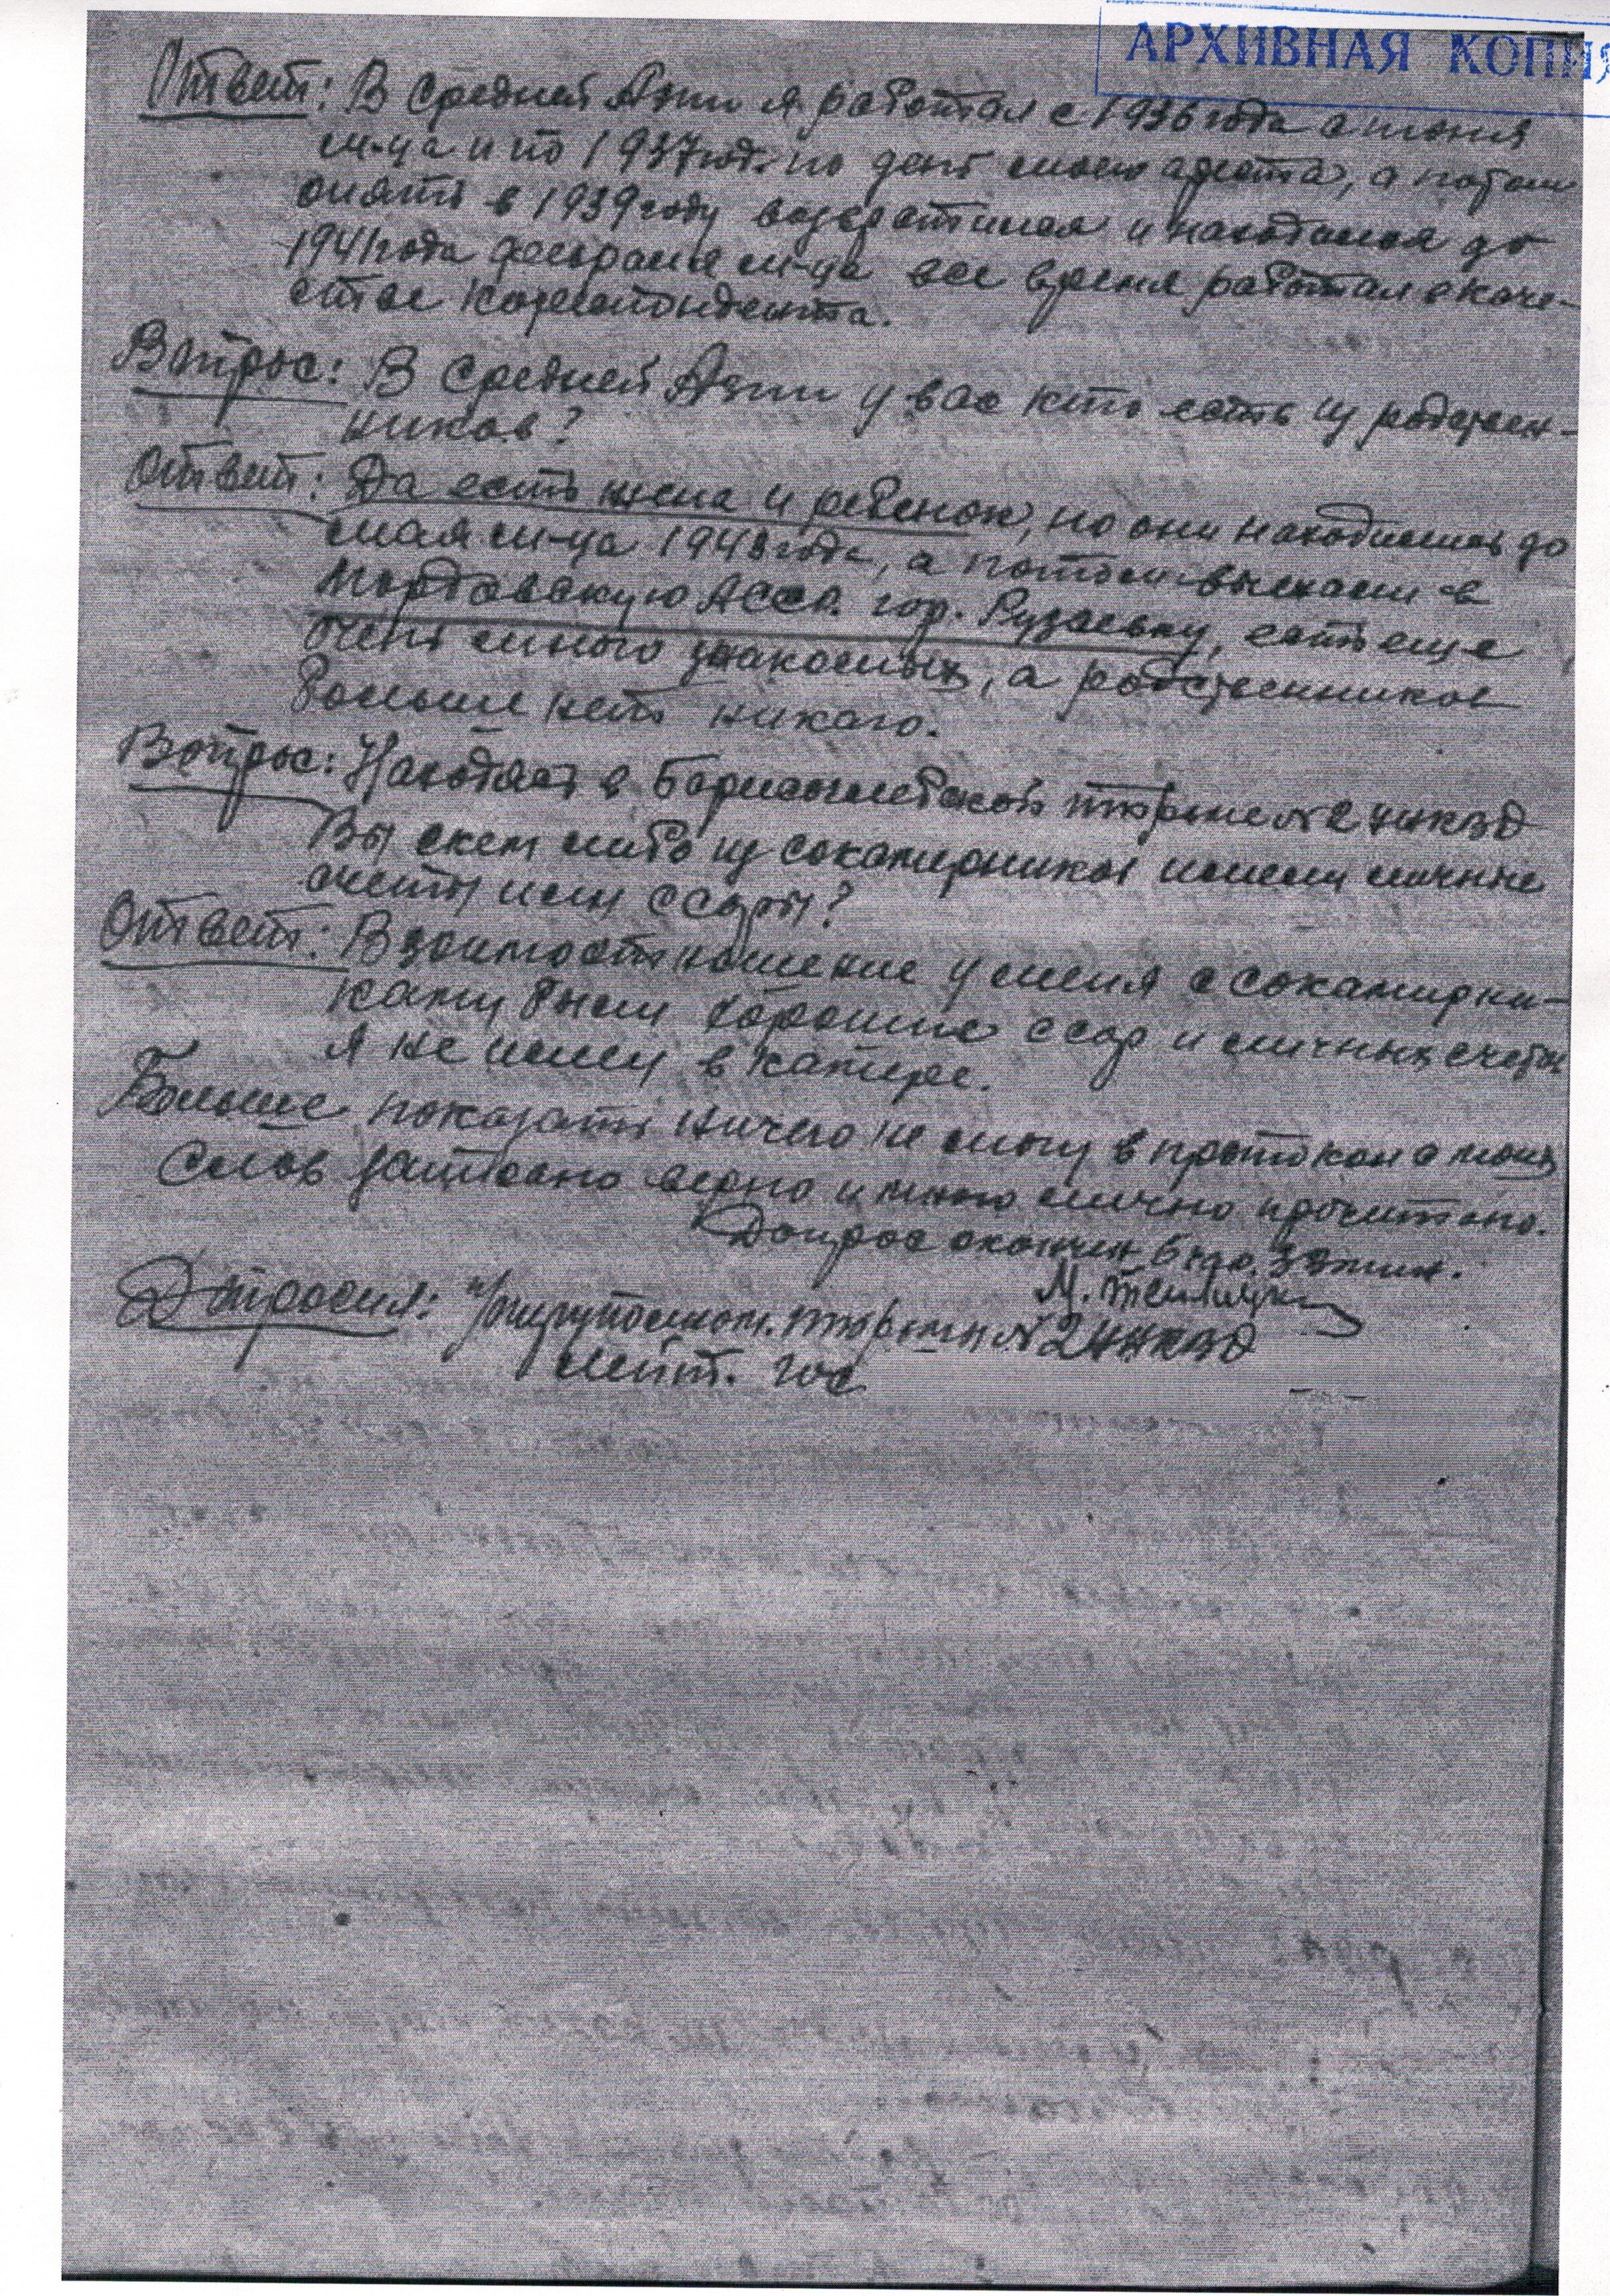 АРХИВНАЯ КОПИЯ
Ответ: В Средней Азии я работал с 1936 года с июня
м-ца и по 1937 год. по день моего ареста, а потом
опять в 1939 году возвратился и находился до
1941 года февраля м-ца все время работал в каче-
стве корреспондента.
Вопрос: В Средней Азии у вас кто есть из родствен-
ников?
Ответ: Да есть жена и ребенок, но они находились до
мая м-ца 1943 года, а потом выехали в
Мордовскую АССР. гор. Рузаевку, есть еще
очень много знакомых, а родственников
больше нет никого.
Вопрос: Находясь в тюрьме №2 НКВД
Вы с кем либо из сокамерников имели личные
счеты или ссоры?
Ответ: Взаимоотношение у меня с сокамерни-
ками были хорошие ссор и личных счетов
я не имел в камере.
Больше показать ничего не могу в протокол с моих
слов записано верно и мною лично прочитано.
Допрос окончен 6 час. 33 мин.
М.
Допросил: тюрьмы №2 НКВД